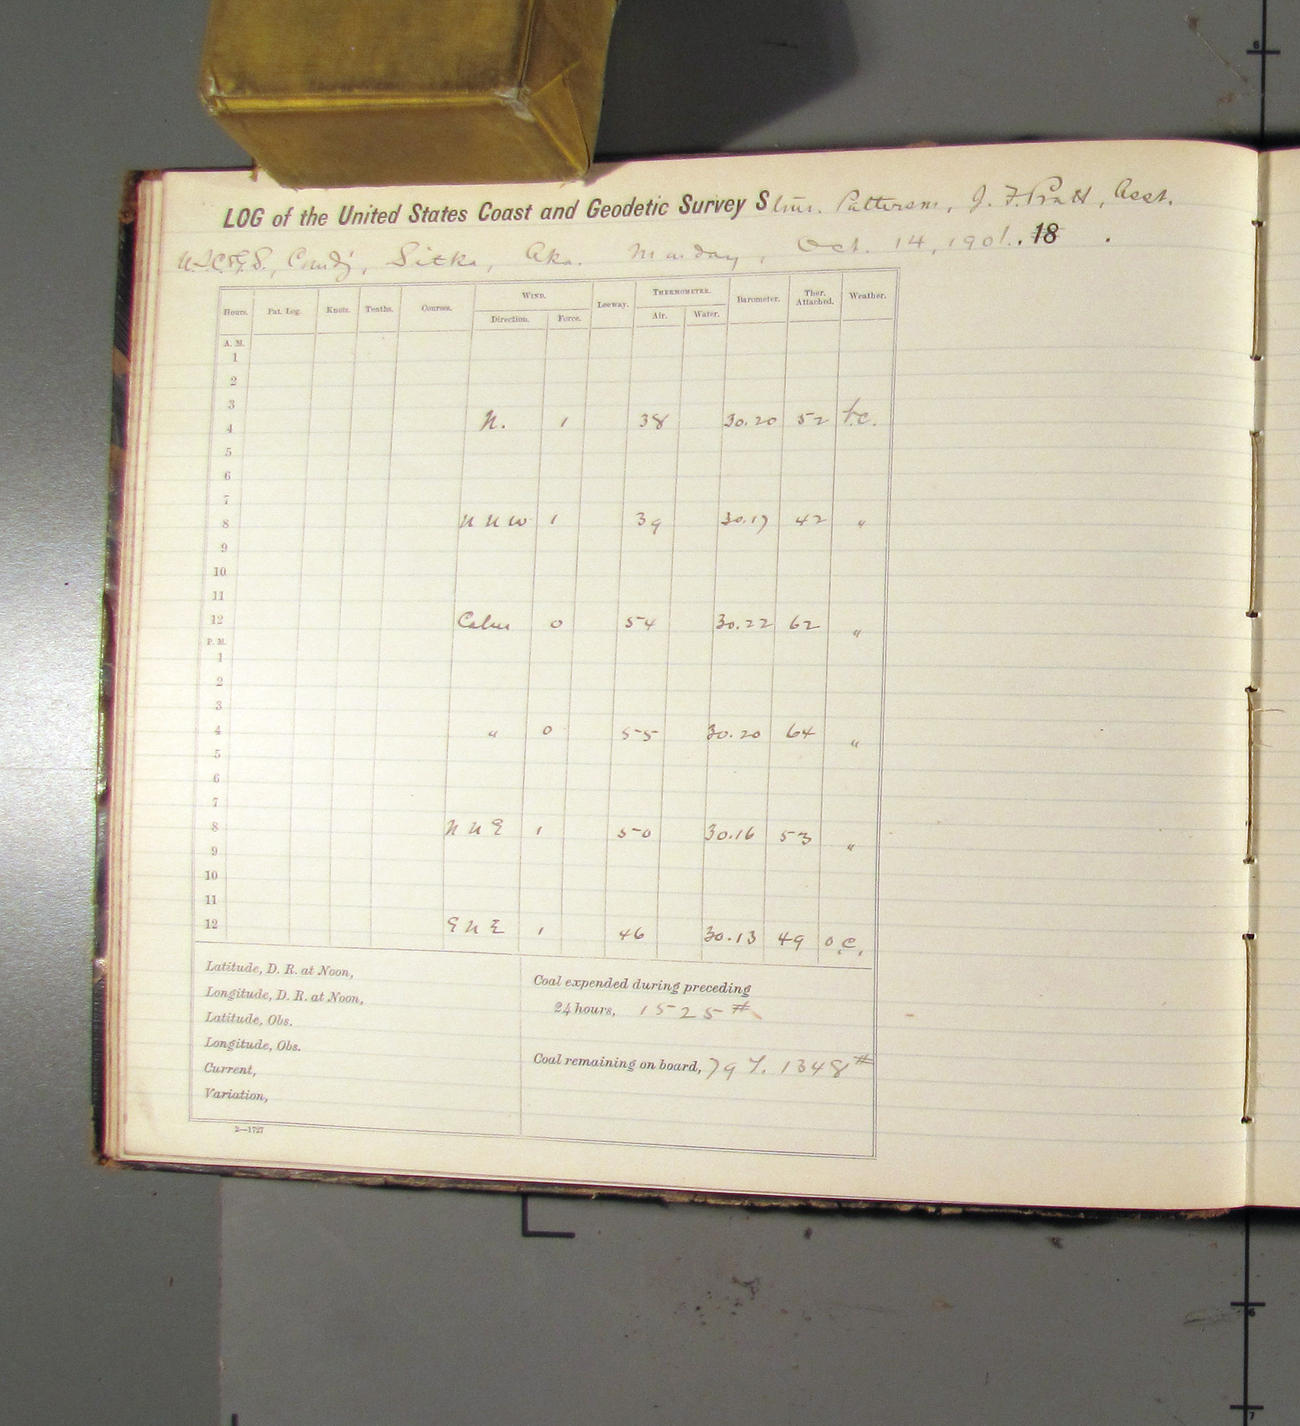 LOG of the United States Coast and Geodetic Survey Stmr. Patterson, J. F. Pratt, Asst.
U.S.C.&G.S., Comd'g, Sitka, Aka. Monday, Oct. 14, 1901. 18 .
Hours. Pat. Log. Knots. Tenths. Courses. WIND. Leeway. THERMOMETER. Barometer. Ther. Attached. Weather.
Direction. Force. Air. Water.
A. M.
1
2
3
4 N. 1 38 30.20 52 b.c.
5
6
7
8 N N W 1 39 30.17 42 "
9
10
11
12 Calm 0 54 30.22 62 "
P. M.
1
2
3
4 " 0 55 30.20 64 "
5
6
7
8 N N E 1 50 30.16 53 "
9
10
11
12 E N E 1 46 30.13 49 o.c.
Latitude, D. R. at Noon,
Longitude, D. R. at Noon,
Latitude, Obs.
Longitude, Obs.
Current,
Variation,
Coal expended during preceding
24 hours, 1525 #
Coal remaining on board, 79 T. 1348 #
2—1727
6
6
7